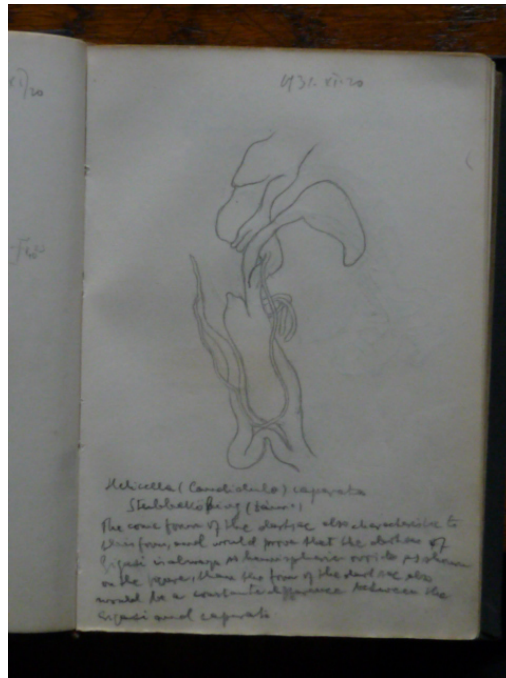 Helicella (Candidula) caparata
Stubbekøbing
The conic form of the dartsac also characteristic to
this form, and would prove that the dartsac of
Gigaxi is always as hemispheric as shown
on the figure, then the form of the dartsac also
would be a constant difference between the
Gigaxi and caparata